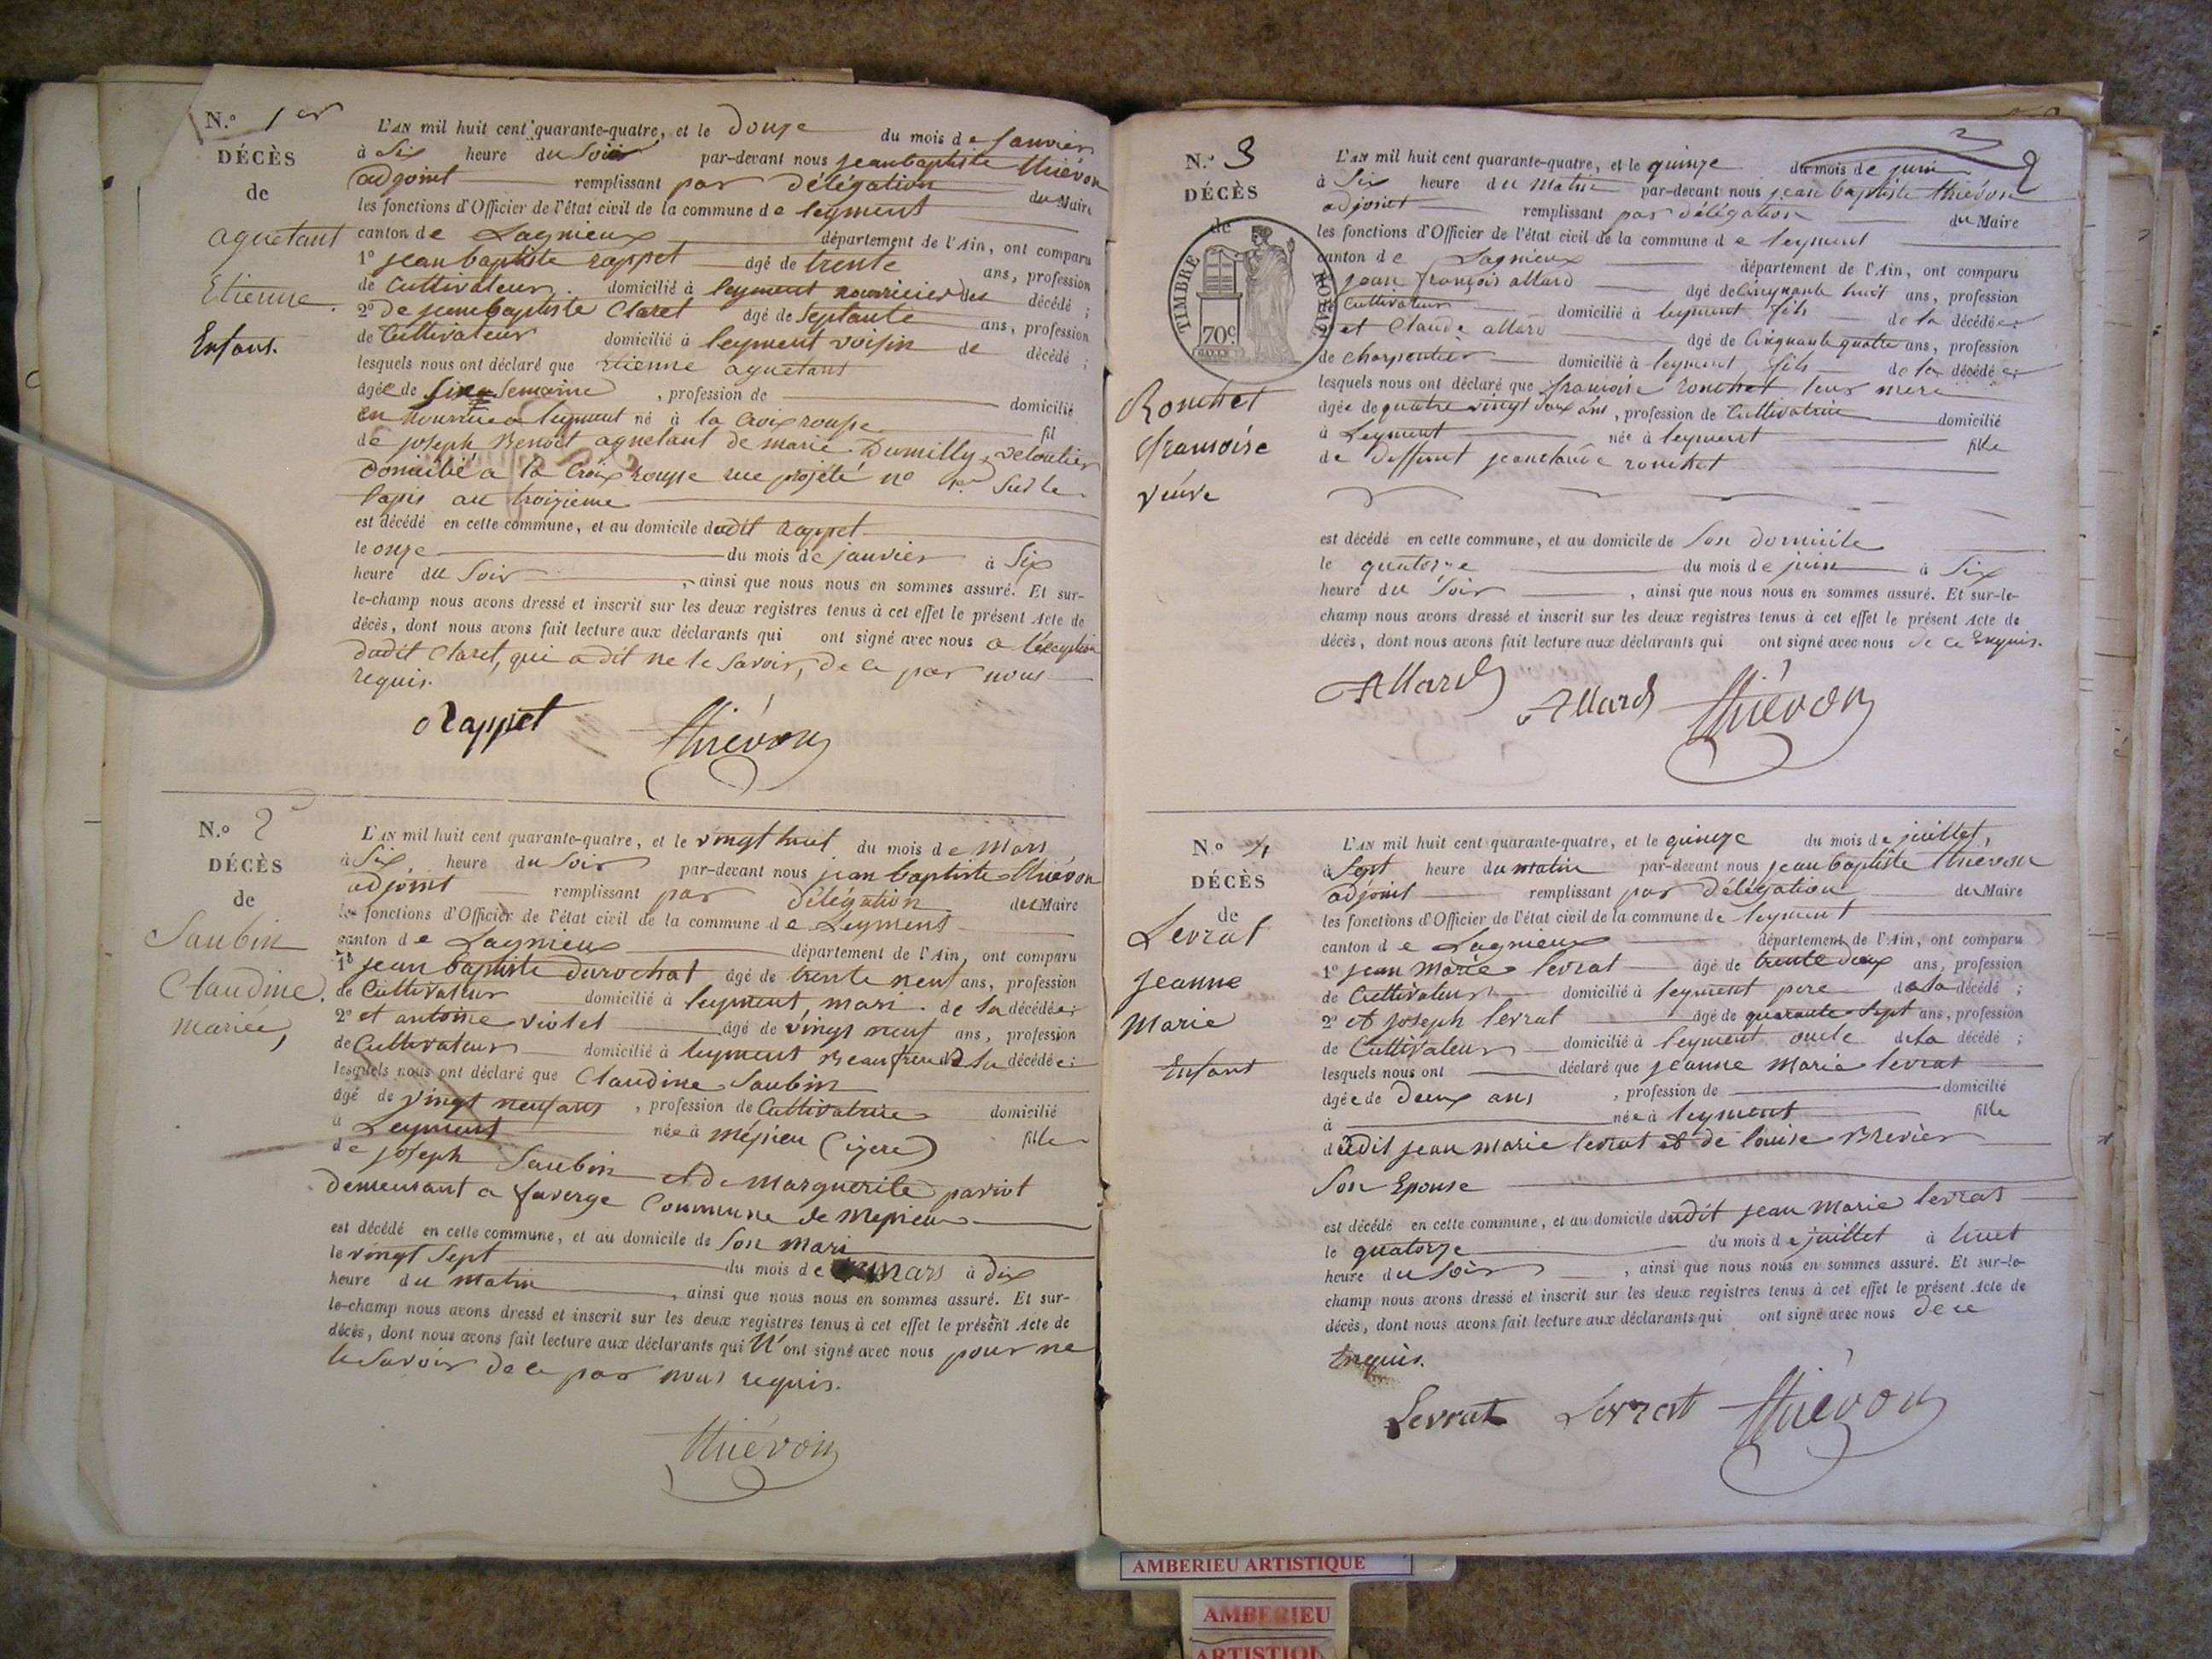 N.° 1er
DÉCÈS
de
aguetant
Etienne.
Enfant.
L'AN mil huit cent quarante-quatre, et le Douze du mois de Janvier
à Six heure du Soir par-devant nous jean baptiste thiévon
adjoint remplissant par délégation du Maire
les fonctions d'Officier de l'état civil de la commune de leyment
canton de Lagnieux département de l'Ain, ont comparu
1° jean baptiste rappet agé de trente ans, profession
de Cultivateur domicilié à leyment nourricier du décédé ;
2° de jean baptiste Claret agé de Septante ans, profession
de Cultivateur domicilié à leyment voisin de décédé ;
lesquels nous ont déclaré que Etienne aguetant
agée de Semaine, profession de domicilié
en nourrice a leyment né à la Croix rousse fil
de joseph Benoit aguetant de marie Dumilly, veloutier
Domicilié a la Croix rousse rue projété n° Sur le
tapis au troizieme
est décédé en cette commune, et au domicile dudit rappet
le onze du mois de janvier à Six
heure du Soir, ainsi que nous nous en sommes assuré. Et sur-
le-champ nous avons dressé et inscrit sur les deux registres tenus à cet effet le présent Acte de
décès, dont nous avons fait lecture aux déclarants qui ont signé avec nous a lexception
dudit Claret, qui a dit ne le Savoir, de ce par nous
requis.
Rappet thiévon
N.° 2
DÉCÈS
de
Saubin
Claudine.
mariée,
L'AN mil huit cent quarante-quatre, et le vingt huit du mois de mars
à Six heure du Soir par-devant nous jean baptiste thiévon
adjoint remplissant par délégation du Maire
les fonctions d'Officier de l'état civil de la commune de Leyment
canton de Lagnieux département de l'Ain, ont comparu
1° jean baptiste durochat agé de trente neuf ans, profession
de Cultivateur domicilié à leyment, mari de la décédée ;
2° et antoine violet agé de vingt neuf ans, profession
de Cultivateur domicilié à leyment Beau frere de la décédée ;
lesquels nous ont déclaré que Claudine Saubin
âgé de vingt neuf ans, profession de Cultivatrice domicilié
à Leyment née à mépieu (izere) fille
de joseph Saubin et de marguerite pariot
demeurant a faverge Commune de mepieu
est décédé en cette commune, et au domicile de Son mari
le vingt Sept du mois de mars à Dix
heure du matin, ainsi que nous nous en sommes assuré. Et sur-
le-champ nous avons dressé et inscrit sur les deux registres tenus à cet effet le présent Acte de
décès, dont nous avons fait lecture aux déclarants qui N'ont signé avec nous pour ne
le Savoir de ce par nous requis.
thiévon
2
N.° 3
DÉCÈS
de
TIMBRE ROYAL
70c
Ronchet
francoise
veuve
L'AN mil huit cent quarante-quatre, et le quinze du mois de juin
à Six heure du Matin par-devant nous jean baptiste thiévon
adjoint remplissant par délégation du Maire
les fonctions d'Officier de l'état civil de la commune de leyment
canton de Lagnieux département de l'Ain, ont comparu
jean françois allard agé de Cinquante huit ans, profession
Cultivateur domicilié à leyment fils de la décédée ;
2° et Claude allard agé de Cinquante quatre ans, profession
de charpentier domicilié à leyment fils de la décédée ;
lesquels nous ont déclaré que francoise ronchet leur mere
âgée de quatre vingt deux ans, profession de Cultivatrice domicilié
à Leyment née à leyment fille
de deffunt jean claude ronchet
est décédé en cette commune, et au domicile de Son domicile
le quatorze du mois de juin à Six
heure du Soir, ainsi que nous nous en sommes assuré. Et sur-le-
champ nous avons dressé et inscrit sur les deux registres tenus à cet effet le présent Acte de
décès, dont nous avons fait lecture aux déclarants qui ont signé avec nous de ce Enquis.
Allard Allard thiévon
N.° 4
DÉCÈS
de
Levrat
jeanne
Marie
Enfant
L'AN mil huit cent quarante-quatre, et le quinze du mois de juillet,
à Sept heure du matin par-devant nous jean baptiste thiévon
adjoint remplissant par délégation du Maire
les fonctions d'Officier de l'état civil de la commune de leyment
canton de Lagnieux département de l'Ain, ont comparu
1° jean Marie levrat agé de trente deux ans, profession
de Cultivateur domicilié à leyment pere de la décédé ;
2° et joseph levrat agé de quarante Sept ans, profession
de Cultivateur domicilié à leyment oncle de la décédé ;
lesquels nous ont déclaré que jeanne Marie levrat
âgée de Deux ans, profession de domicilié
à née à leyment fille
dudit jean marie levrat et de louise Brevier
Son Epouse
est décédé en cette commune, et au domicile dudit jean Marie levrat
le quatorze du mois de juillet à huit
heure du Soir, ainsi que nous nous en sommes assuré. Et sur-le-
champ nous avons dressé et inscrit sur les deux registres tenus à cet effet le présent Acte de
décès, dont nous avons fait lecture aux déclarants qui ont signé avec nous de ce
Enquis.
Levrat Levrat thiévon
AMBERIEU ARTISTIQUE
AMBERIEU
ARTISTIQU